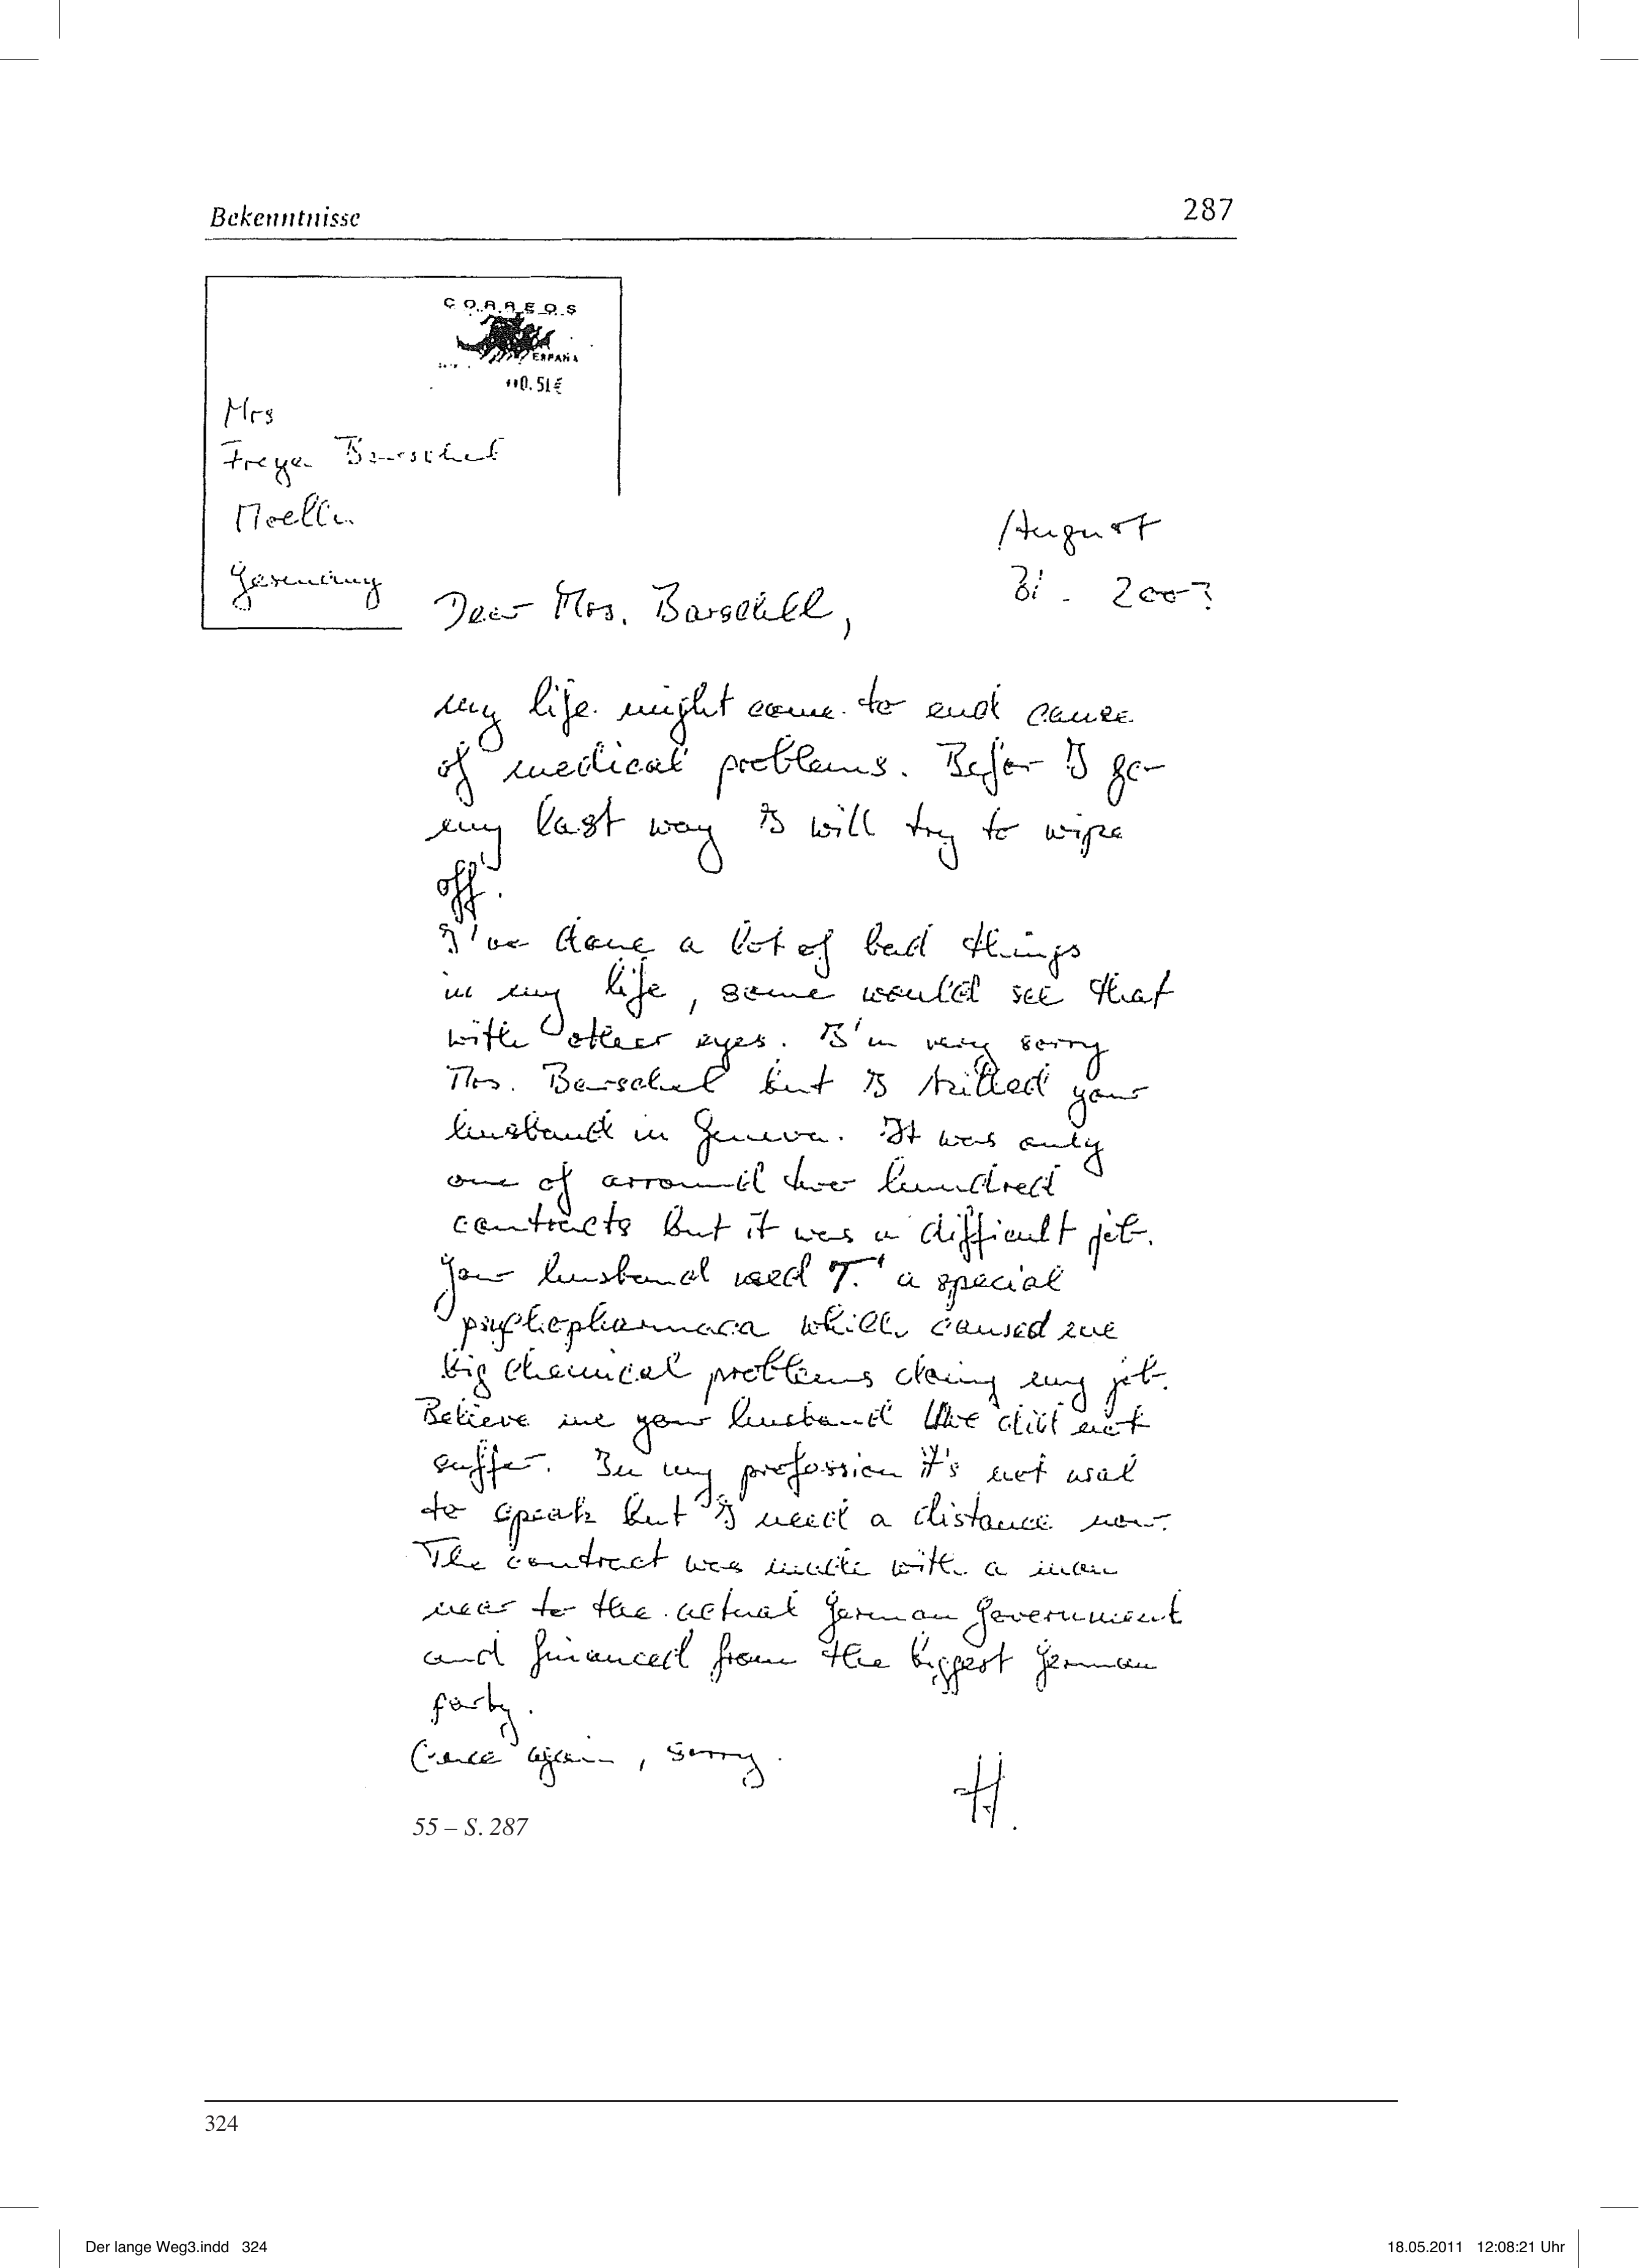 Bekenntnisse 287
CORREOS
ESPAÑA
0.51€
Mrs
Freya Barschel
Moelln
Germany
August
31. 2003
Dear Mrs. Barschel,
my life might come to end cause
of medical problems. Befor I go
my last way I will try to wipe
off.
I've done a lot of bad things
in my life, some would see that
with other eyes. I'm very sorry
Mrs. Barschel but I killed your
husband in Geneva. It was only
one of arround two hundred
contracts but it was a difficult job.
Your husband used T. a special
psychopharmaca which caused me
big chemical problems doing my job.
Believe me your husband did not
suffer. In my profession it's not usal
to speak but I need a distance now.
The contract was made with a man
near to the actual German Government
and financed from the biggest German
party.
Once again, sorry.
H.
55 – S. 287
324
Der lange Weg3.indd 324 18.05.2011 12:08:21 Uhr